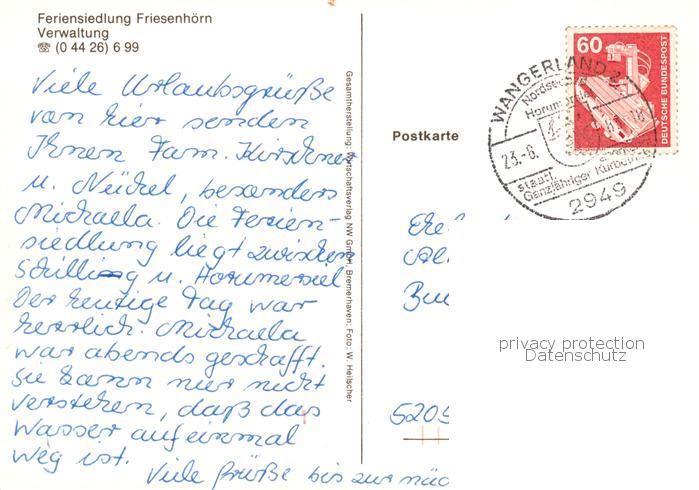 Feriensiedlung Friesenhörn
Verwaltung
☎ (0 44 26) 6 99
Viele Urlaubsgrüße
von hier senden
Ihnen Fam. Kirschner
u. Nückel, besonders
Michaela. Die Ferien-
siedlung liegt zwischen
Schillig u. Horumersiel
Der heutige Tag war
herrlich. Michaela
war abends geschafft.
Sie kann nur nicht
verstehen, daß das
Wasser auf einmal
weg ist.
Viele Grüße bis zur näc
Gesamtherstellung: Wirtschaftsverlag NW GmbH, Bremerhaven; Foto: W. Heilscher
Postkarte
60
DEUTSCHE BUNDESPOST
WANGERLAND 2
Nordsee
Horumersiel
23.-6.
staatl.
Ganzjähriger Kurbetrieb
2949
5205
privacy protection
Datenschutz